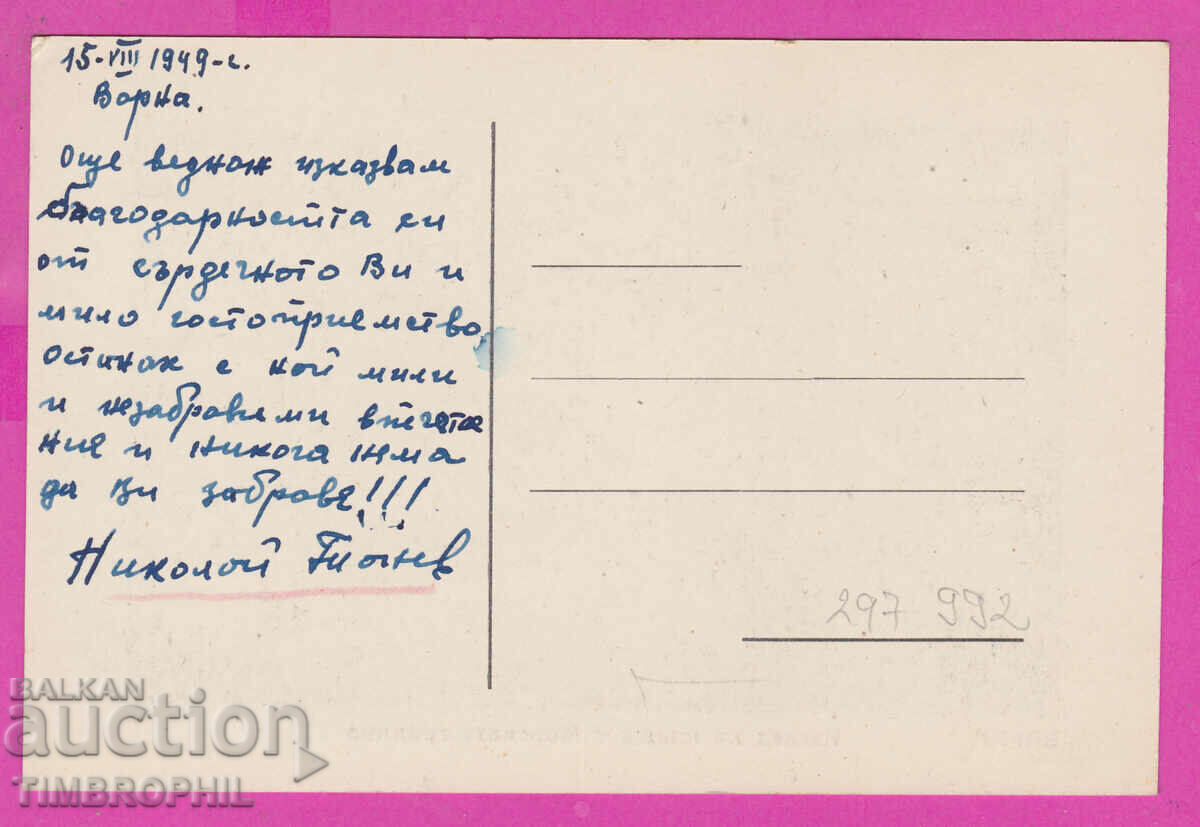 15-VIII 1949-г.
Варна.
Още веднож изказвам
благодарността си
от сърдечното Ви и
мило гостоприемство,
остинах с кой мили
и незабравими впечатле
ние и никога нема
да Ви забраве!!!
Николай
297 992
BALKAN
auction
TIMBROPHIL